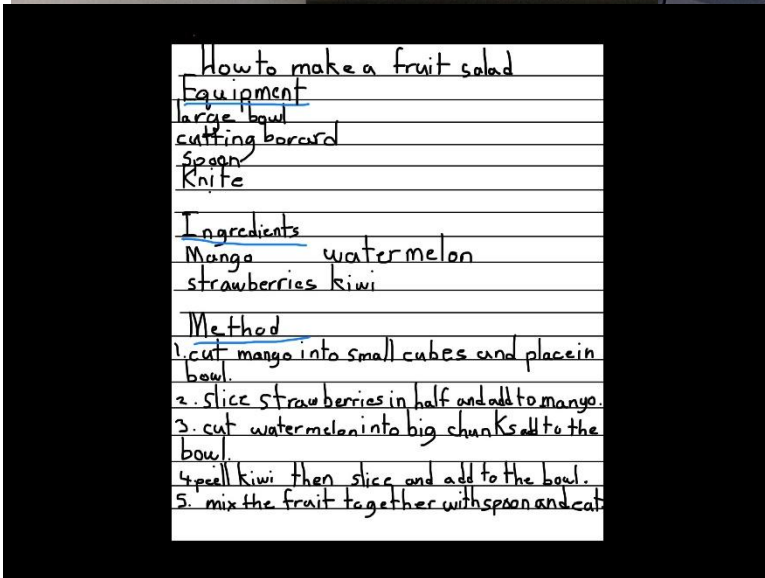 How to make a fruit salad
Equipment
large bowl
cutting borard
Spoon
Knife
Ingredients
Mango watermelon
strawberries kiwi
Method
1. cut mango into small cubes and place in
bowl.
2. slice strawberries in half and add to mango.
3. cut watermelon into big chunks add to the
bowl.
4 peell kiwi then slice and add to the bowl.
5. mix the fruit together with spoon and eat